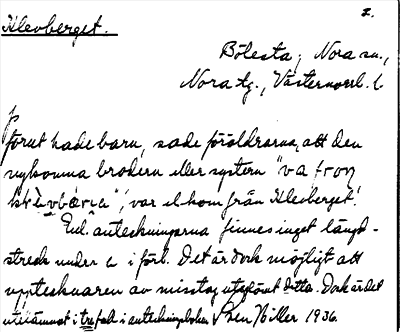 2.
Klevberget.
Bölesta, Nora sn.,
Nora tg., Västernorrl. l.
förut hade barn, sade föräldrarna, att den
nykomna brodern eller systern "va frǫn
var el. kom från Klevberget.
Enl. anteckningarna finnes inget längd-
streck under a i förl. Det är dock möjligt att
upptecknaren av misstag utglömt detta. Dock är det
utelämnat i tre fall i anteckningsboken Sven Hiller 1936.